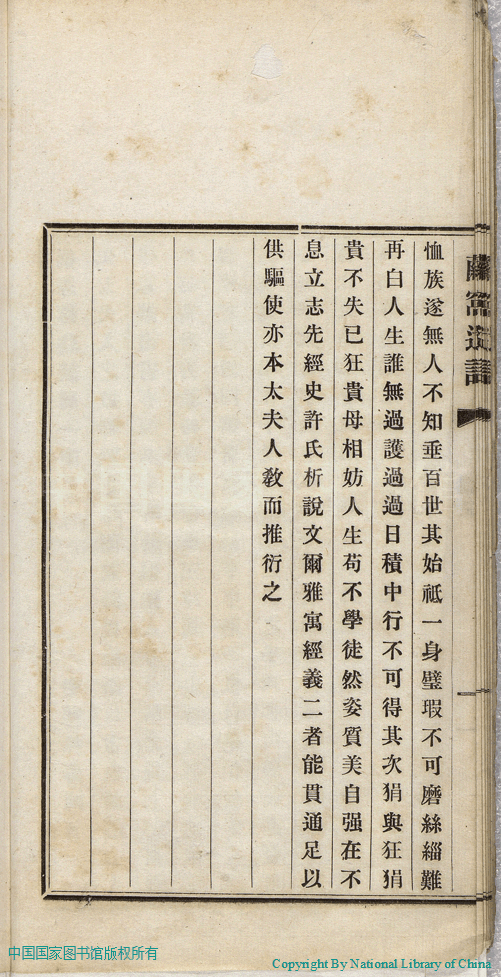 恤族遂無人不知垂百世其始祗一身璧瑕不可磨絲緇難
再白人生誰無過護過過日積中行不可得其次狷與狂狷
貴不失已狂貴母相妨人生苟不學徒然姿質美自强在不
息立志先經史許氏析說文爾雅寓經義二者能貫通足以
供驅使亦本太夫人教而推衍之
中国国家图书馆版权所有
Copyright By National Library of China